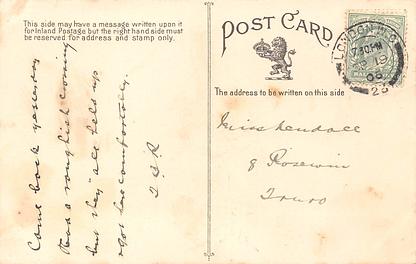 This side may have a message written upon it
for Inland Postage but the right hand side must
be reserved for address and stamp only.
POST CARD
The address to be written on this side
LONDON W.C.
7.30 PM
19
09
23
Come back yesterday
Had a roughish crossing
but they all held up
& got here comfortably.
Miss Kendall
8 Rosewin
Truro